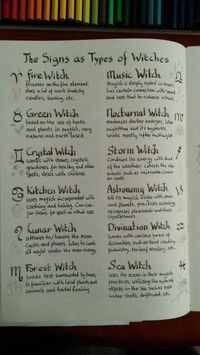 The Signs as Types of Witches
Fire Witch
focuses on fire element,
does a lot of work involving
candles, burning, etc.
Green Witch
based on the use of herbs
and plants in magick, very
natural and earth based
Crystal Witch
works with stones, crystals,
gemstones for healing and other
spells, deals with chakras
Kitchen Witch
uses magick incorporated with
cooking and baking, can use
for living or spell or ritual use
Lunar Witch
attuned to/honors the moon
cycles and phases, likes to work
at night under the moon energy
Forest Witch
works best surrounded by trees,
is familiar with local plants and
animals and herbal healing
Music Witch
magick is deeply rooted in music,
has certain connection with sound
and uses that to enhance rituals
Nocturnal Witch
embraces darker energies, likes
nighttime and its mysteries,
works mostly after midnight
Storm Witch
combines its energy with that
of the weather, collects the
such as rainwater/snow
for spells
Astronomy Witch
all its magick aligns with stars
and planets, practices astrology,
recognizes placements and their
significances
Divination Witch
works with various forms of
divination, such as tarot reading,
palmistry, tea leaf reading, etc
Sea Witch
uses the ocean in their magick
practices, utilizing the natural
objects in the sea such as salt
water, shells, driftwood, etc.